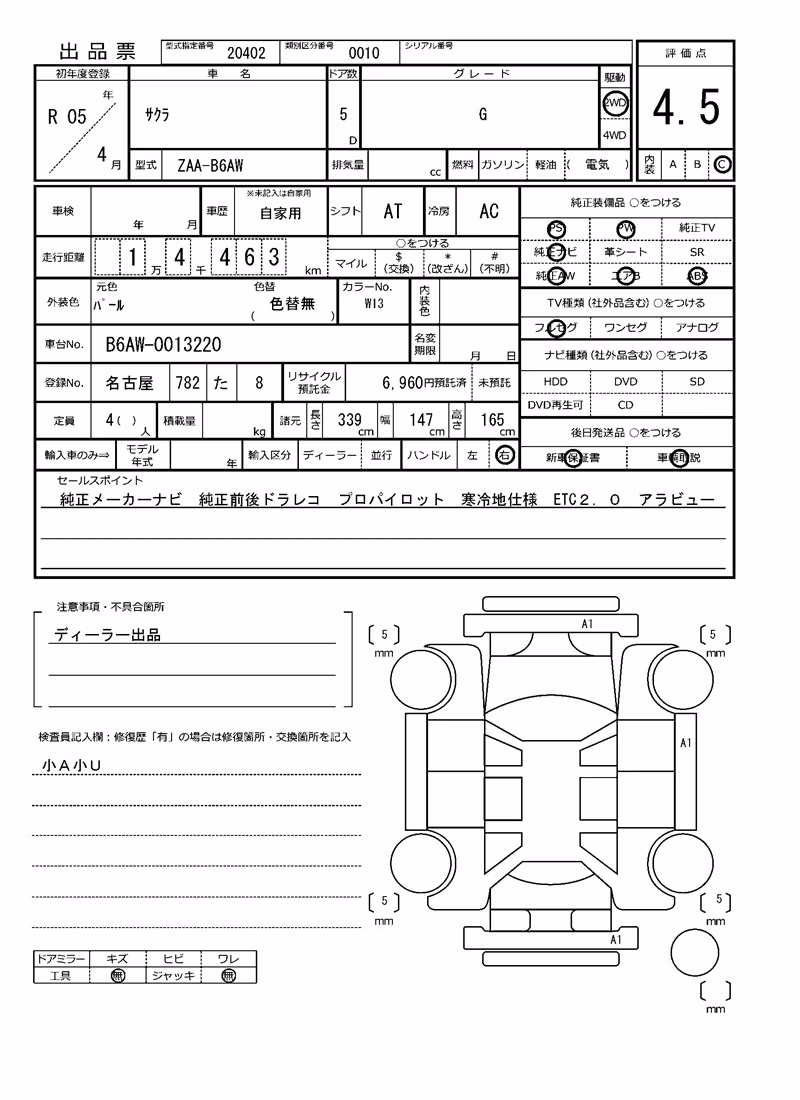 出品票 型式指定番号 20402 類別区分番号 0010 シリアル番号
評価点
初年度登録 車名 ドア数 グレード 駆動
R 05 年 4 月 サクラ 5 D G 2WD 4WD
4.5
型式 ZAA-B6AW 排気量 cc 燃料 ガソリン 軽油 ( 電気 )
内装 A B C
車検 年 月 車歴 ※未記入は自家用 自家用 シフト AT 冷房 AC
走行距離 1 万 4 千 4 6 3 km ○をつける
マイル $ (交換) * (改ざん) # (不明)
外装色 元色 パール 色替 ( 色替無 ) カラーNo. W13 内装色
車台No. B6AW-0013220 名変期限 月 日
登録No. 名古屋 782 た 8 リサイクル預託金 6,960円預託済 未預託
定員 4( ) 人 積載量 kg 諸元 長さ 339 cm 幅 147 cm 高さ 165 cm
輸入車のみ⇒ モデル年式 年 輸入区分 ディーラー 並行 ハンドル 左 右
純正装備品 ○をつける
PS PW 純正TV
純正ナビ 革シート SR
純正AW エアB ABS
TV種類(社外品含む) ○をつける
フルセグ ワンセグ アナログ
ナビ種類(社外品含む) ○をつける
HDD DVD SD
DVD再生可 CD
後日発送品 ○をつける
新車保証書 車輌取説
セールスポイント
純正メーカーナビ 純正前後ドラレコ プロパイロット 寒冷地仕様 ETC2.0 アラビュー
注意事項・不具合箇所
ディーラー出品
検査員記入欄:修復歴「有」の場合は修復箇所・交換箇所を記入
小A小U
ドアミラー キズ ヒビ ワレ
工具 無 ジャッキ 無
A1
[ 5 ] mm
[ 5 ] mm
A1
[ 5 ] mm
[ 5 ] mm
A1
[ ] mm